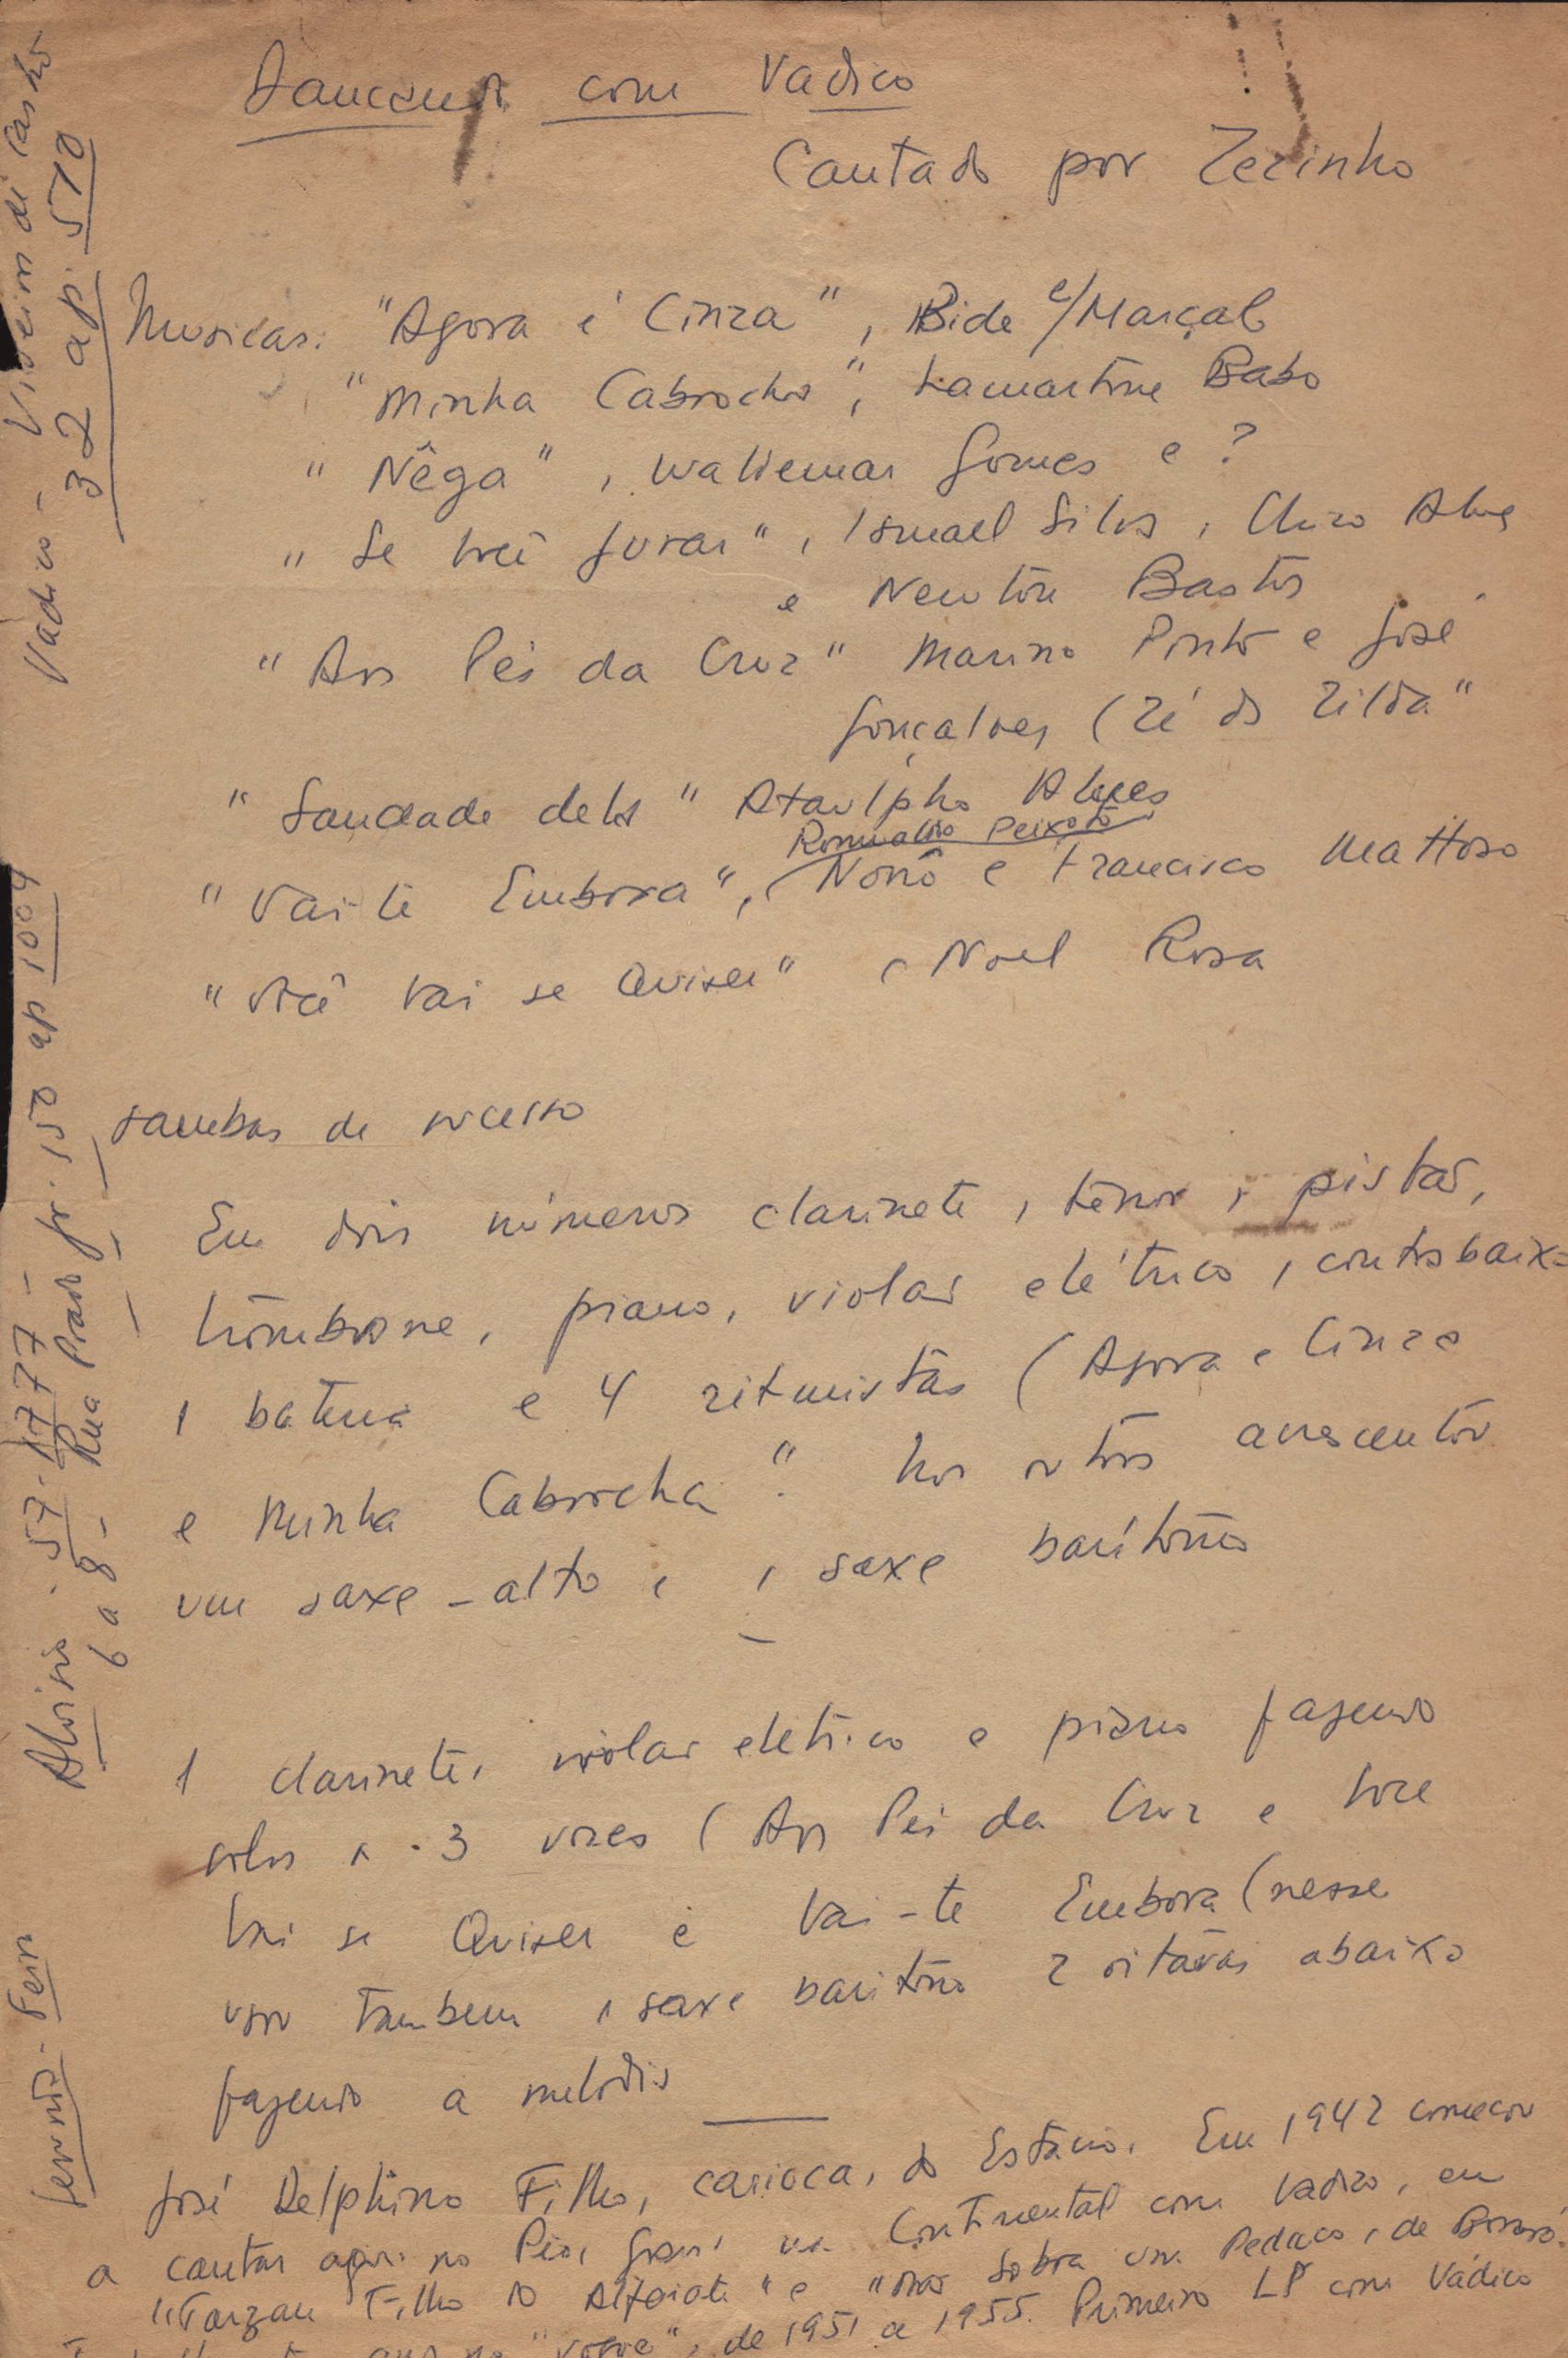 Dançando com Vadico
Cantado por Zezinho
Musicas: "Agora é Cinza", Bide e/Marçal
"Minha Cabrocha", Lamartine Babo
"Nêga", Waldemar Gomes e ?
"Se você Jurar", Ismael Silva, Chico Alves
e Newton Bastos
"Aos Pés da Cruz" Marino Pinto e José
Gonçalves (Zé da Zilda"
"Saudade dela" Ataulpho Alves
Romualdo Peixoto
"Vai-te Embora", (Nonô e Francisco Mattoso
"Você Vai se Quiser", Noel Rosa
sambas de sucesso
Em dois números clarinete, tenor, pistão,
trombone, piano, violão elétrico, contrabaixo
1 bateria e 4 ritmistas (Agora é Cinza
e Minha Cabrocha". Nos outros acrescentou
um saxe-alto e 1 saxe barítono
1 clarinete, violão eletrico e piano fazendo
solos a 3 vozes (Aos Pés da Cruz e Voce
Vai se Quiser e Vai-te Embora (nesse
usou tambem 1 saxe baritono 2 oitavas abaixo
fazendo a melodia
José Delphino Filho, carioca, do Estácio. Em 1942 começou
a cantar aqui no Rio, gravou na Continental com Vadico, em
"Tarzan Filho do Alfaiate" e "Não Sobra um Pedaço, de Bororó.
"Vogue", de 1951 a 1955. Primeiro LP com Vádico
Vadico - Viveiros de Castro
32 ap. 570
Aloisio - 57-1777 -
6 a 8 - Rua Prado Jr. 150 ap 1004